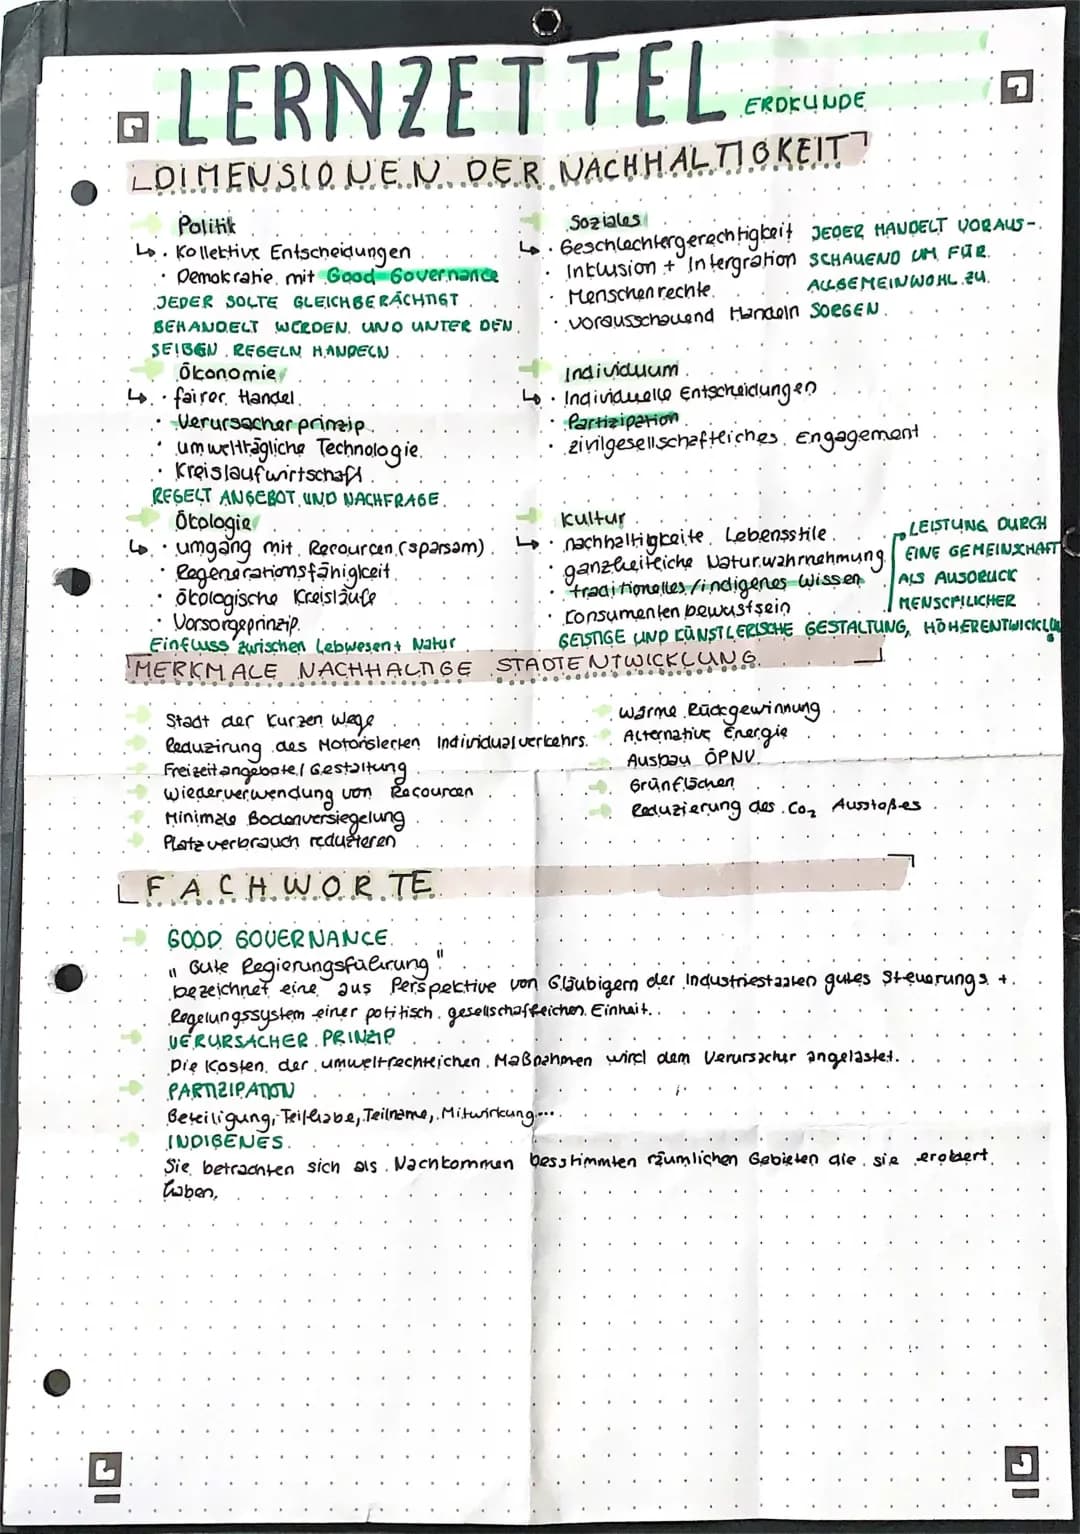 LERNZETTEL ERDKUNDE
DIMENSIONEN DER NACHHALTIGKEIT
Politik
↳ · Kollektive Entscheidungen
· Demokratie mit Good-Governance
JEDER SOLTE GLEICHBERÄCHTIGT
BEHANDELT WERDEN UND UNTER DEN
SELBEN REGELN HANDELN
Ökonomie
↳ · fairer Handel
· Verursacherprinzip
· umweltträgliche Technologie
· Kreislaufwirtschaft
REGELT ANGEBOT UND NACHFRAGE
Ökologie
↳ · umgang mit Recourcen (sparsam)
· Regenerationsfähigkeit
· ökologische Kreisläufe
· Vorsorgeprinzip
Einfluss zwischen Lebwesen+ Natur
Soziales
↳ · Geschlechtergerechtigkeit
· Inklusion + Intergration
· Menschenrechte
· vorausschauend Handeln
JEDER HANDELT VORAUS-
SCHAUEND UM FÜR
ALLGEMEINWOHL ZU
SORGEN
Individuum
↳ · Individuelle Entscheidungen
· Partizipation
· zivilgesellschaftliches Engagement
Kultur
↳ · nachhaltigkeite Lebensstile
· ganzheitliche Naturwahrnehmung
· traditionelles/indigenes Wissen
· Consumenten bewustsein
LEISTUNG DURCH
EINE GEMEINSCHAFT
ALS AUSDRUCK
MENSCHLICHER
GEISTIGE UND KÜNSTLERISCHE GESTALTUNG,
MERKMALE NACHHALTIGE STADTENTWICKLUNG
Stadt der Kurzen Wege
Reduzirung des Motorisierten Individualverkehrs
Freizeitangebote/Gestaltung
Wiederverwendung von Recourcen
Minimale Bodenversiegelung
Platzverbrauch reduzieren
Wärme Rückgewinnung
Alternative Energie
Ausbau ÖPNV
Grünflächen
Reduzierung des CO₂ Ausstoßes
FACHWORTE
GOOD GOVERNANCE
"Gute Regierungsführung"
bezeichnet eine aus Perspektive von Gläubigern der Industriestaaten gutes Steuerungs +
Regelungssystem einer politisch gesellschaftlichen Einheit.
VERURSACHER PRINZIP
Die Kosten der umweltrechtlichen Maßnahmen wird dem Verursacher angelastet.
PARTIZIPATION
Beteiligung, Teilhabe, Teilname, Mitwirkung...
INDIGENES
Sie betrachten sich als Nachkommen besstimmten räumlichen Gebieten die sie erobert
haben.